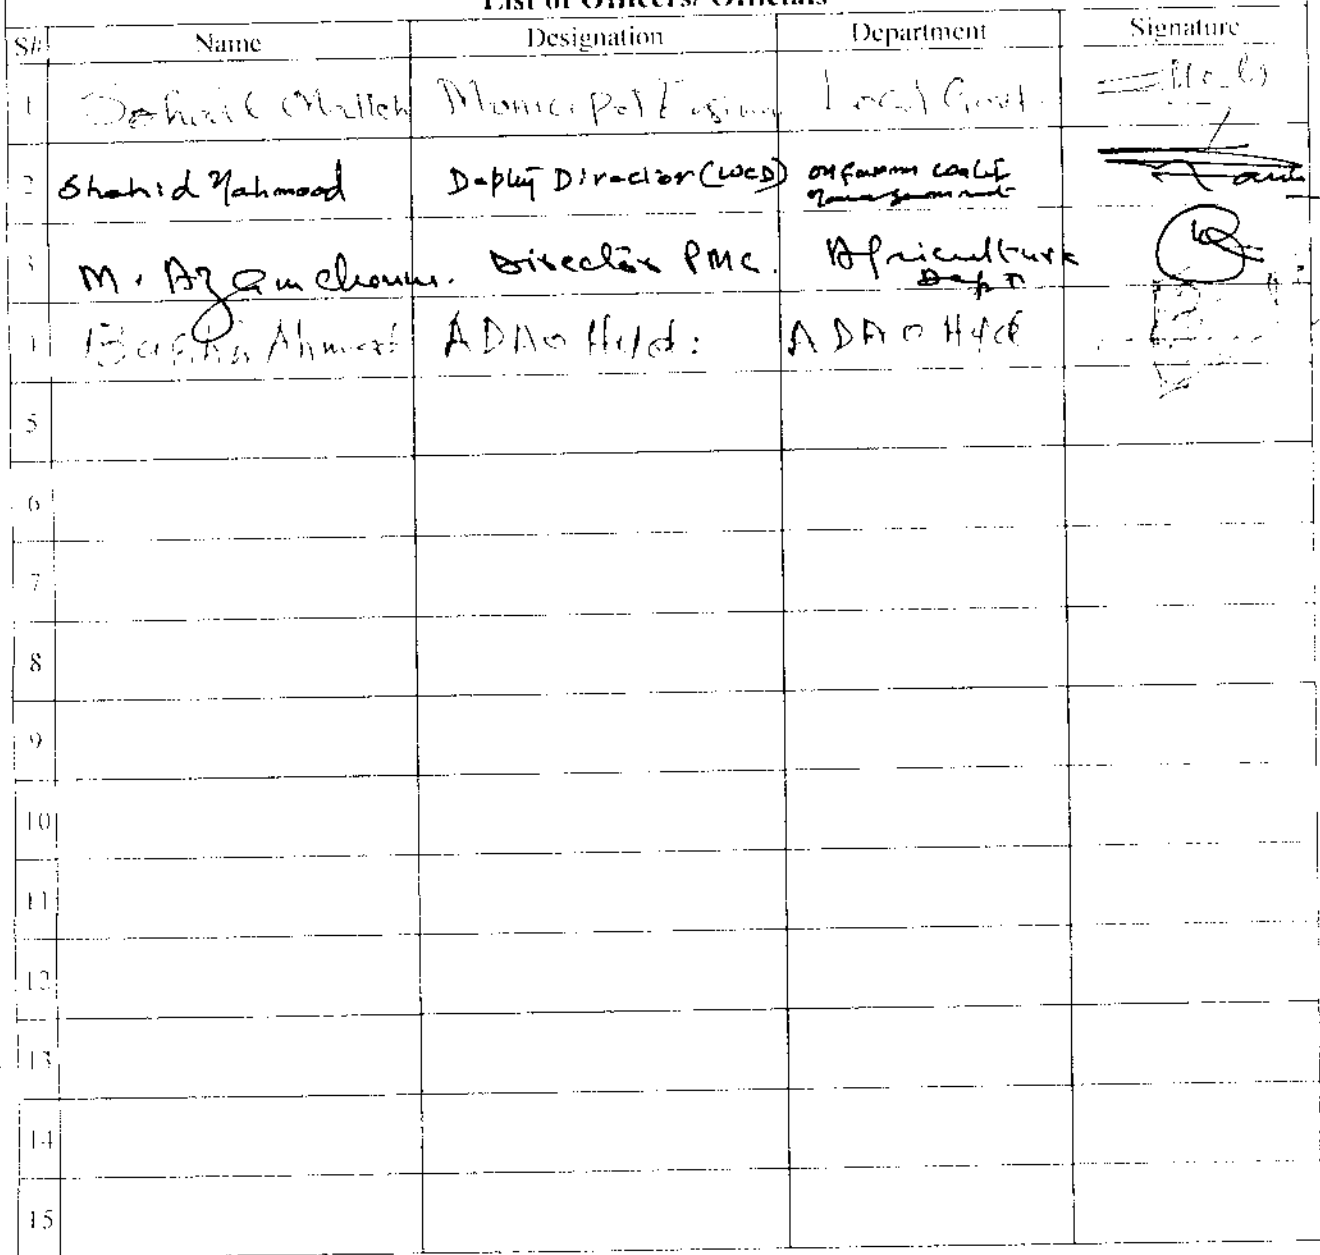 List of Officers/ Officials
S# Name Designation Department Signature
1 Sohail Local Govt.
2 Shahid Mahmood Deputy Director (WCD) on farm water
management
3 M. Azam Director PMC. Agriculture
Deptt
4 Bashir Ahmed ADAO Hyd: ADAO Hyd
5
6
7
8
9
10
11
12
13
14
15